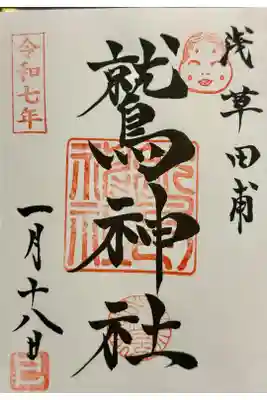 浅草田甫
鷲神社
令和七年
一月十八日